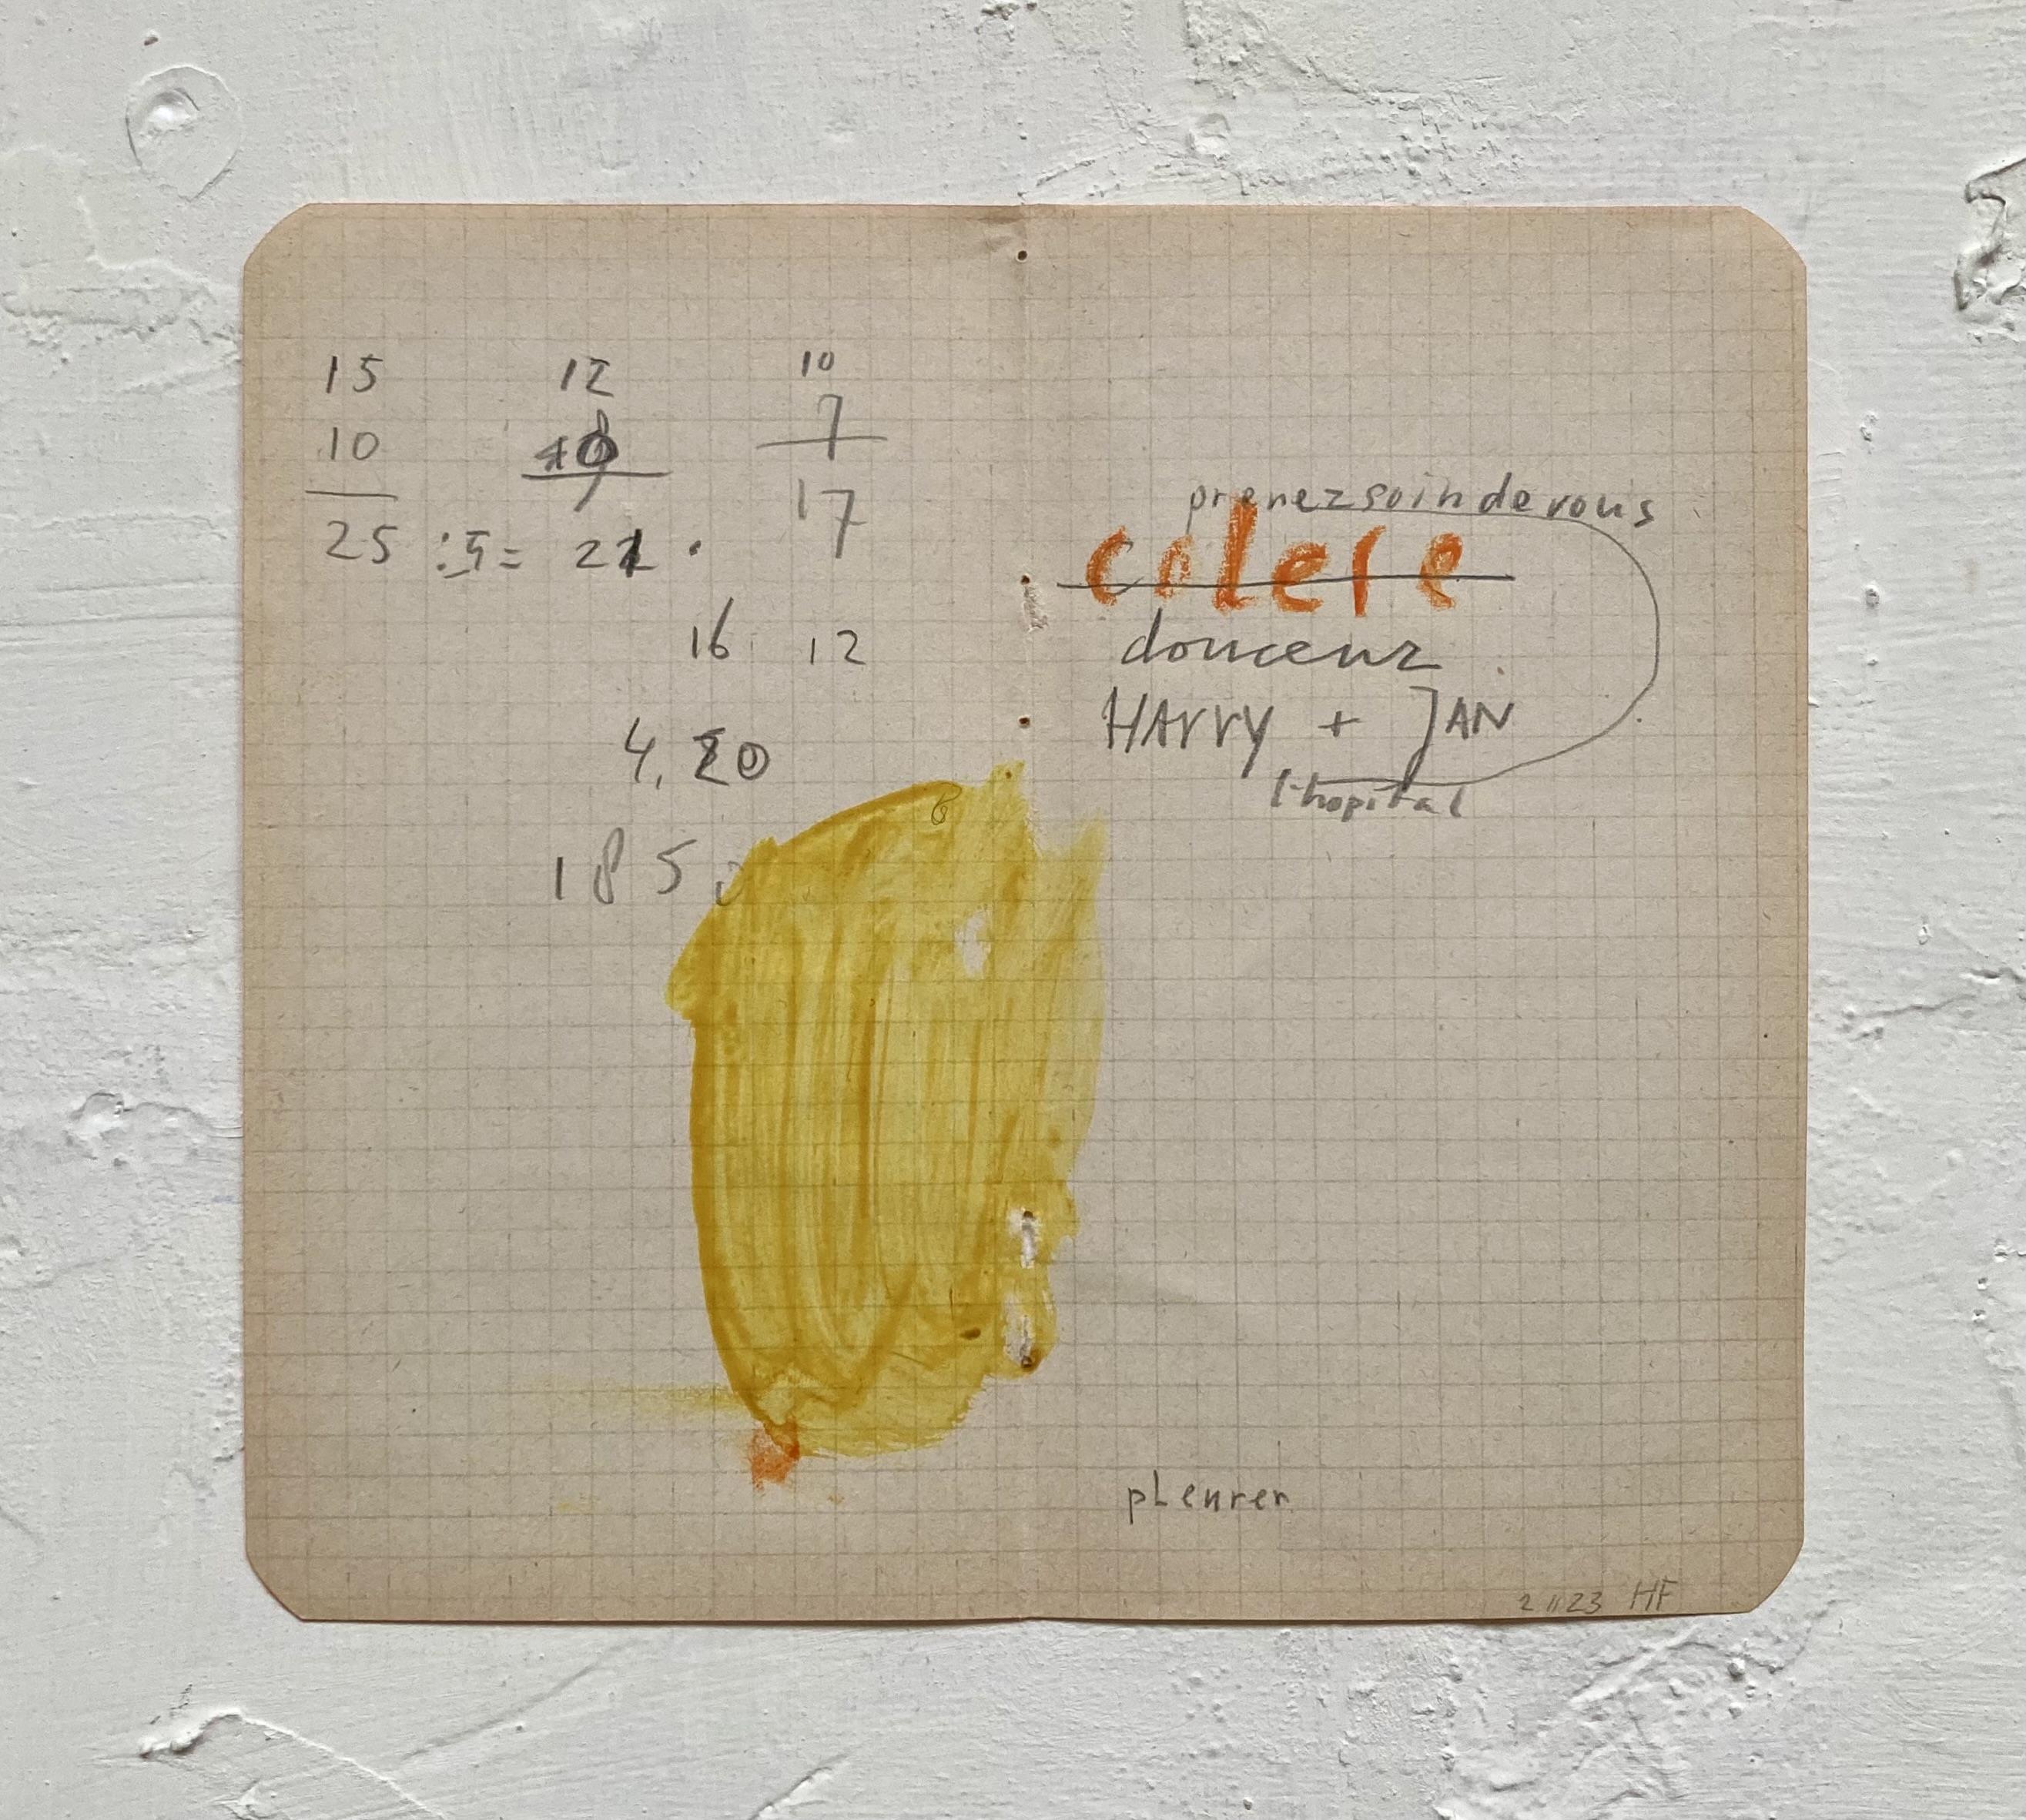 15 12 10
10 7
25 :5= 21. 17
16 12
4,20
185
prenez soin de vous
colere
douceur
HArry + JAN
l'hopital
pLeurer
2 11 23 HF